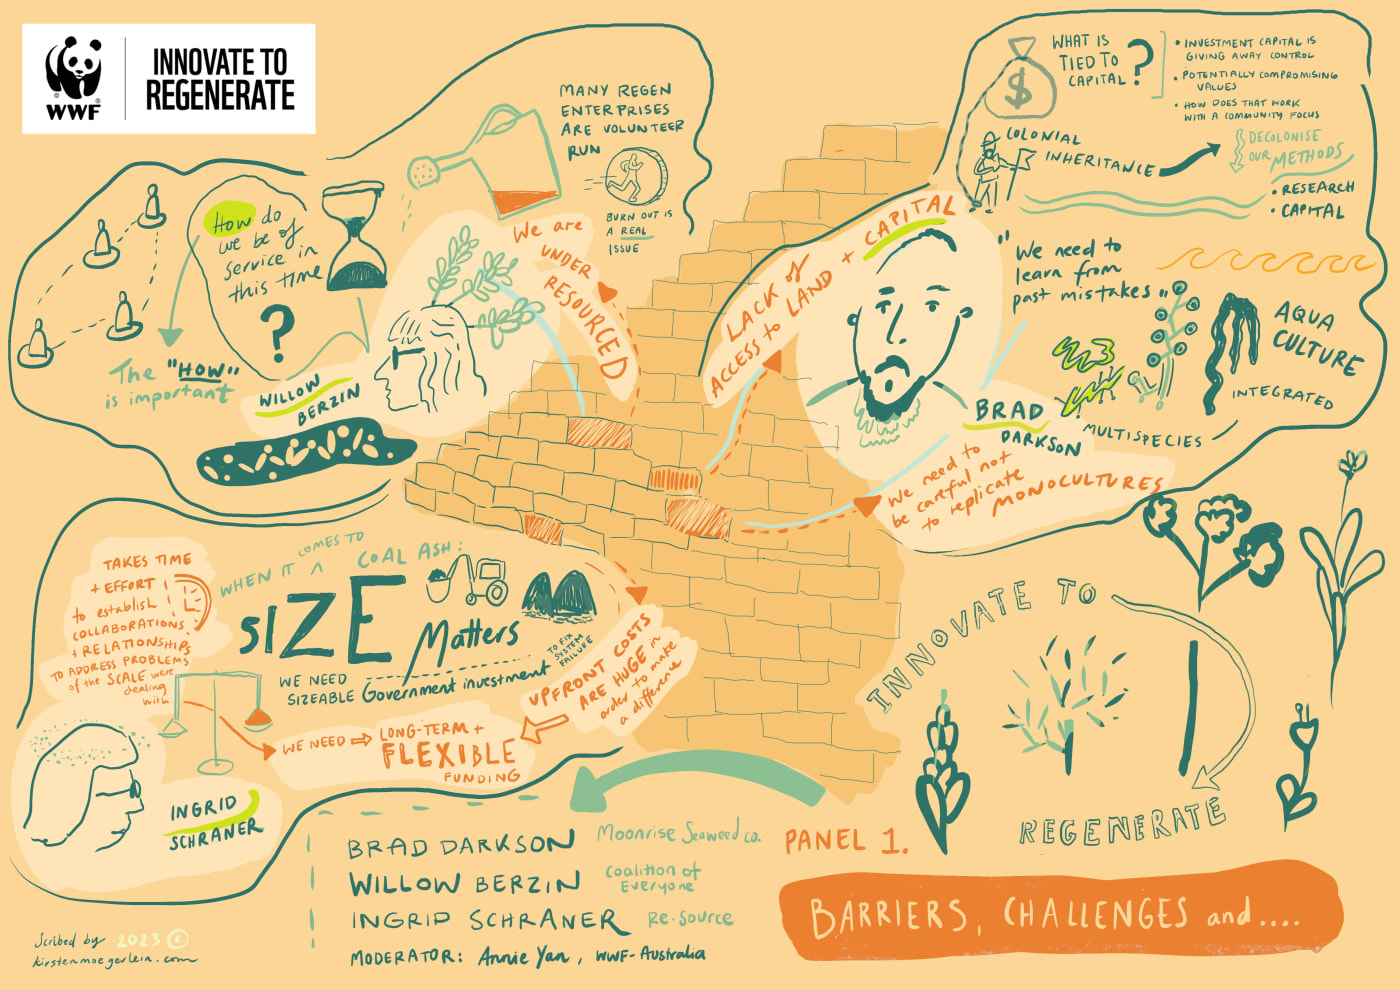 WWF
INNOVATE TO
REGENERATE
MANY REGEN
ENTERPRISES
ARE VOLUNTEER
RUN
BURN OUT IS
A REAL
ISSUE
We are
UNDER
RESOURCED
How do
we be of
service in
this time
?
The "HOW"
is important
WILLOW
BERZIN
WHAT IS
TIED TO
CAPITAL
?
• INVESTMENT CAPITAL IS
GIVING AWAY CONTROL
• POTENTIALLY COMPROMISING
VALUES
• HOW DOES THAT WORK
WITH A COMMUNITY FOCUS
$
COLONIAL
INHERITANCE
DECOLONISE
OUR METHODS
• RESEARCH
• CAPITAL
LACK of
ACCESS to LAND + CAPITAL
"We need to
learn from
past mistakes"
AQUA
CULTURE
INTEGRATED
MULTISPECIES
BRAD
DARKSON
We need to
be careful not
to replicate
MONOCULTURES
TAKES TIME
+ EFFORT
to establish
COLLABORATIONS
+ RELATIONSHIPS
TO ADDRESS PROBLEMS
of the SCALE were
dealing
with
WHEN IT COMES TO COAL ASH:
SIZE
Matters
WE NEED
SIZEABLE Government investment
TO FIX
SYSTEM
FAILURE
UPFRONT COSTS
ARE HUGE in
order to make
a difference
WE NEED
LONG-TERM +
FLEXIBLE
FUNDING
INGRID
SCHRANER
INNOVATE TO
REGENERATE
BRAD DARKSON Moonrise Seaweed co.
WILLOW BERZIN Coalition of
Everyone
INGRID SCHRANER Re-source
MODERATOR: Annie Yan, WWF-Australia
PANEL 1.
BARRIERS, CHALLENGES and....
Scribed by 2023 ©
kirstenmoegerlein.com